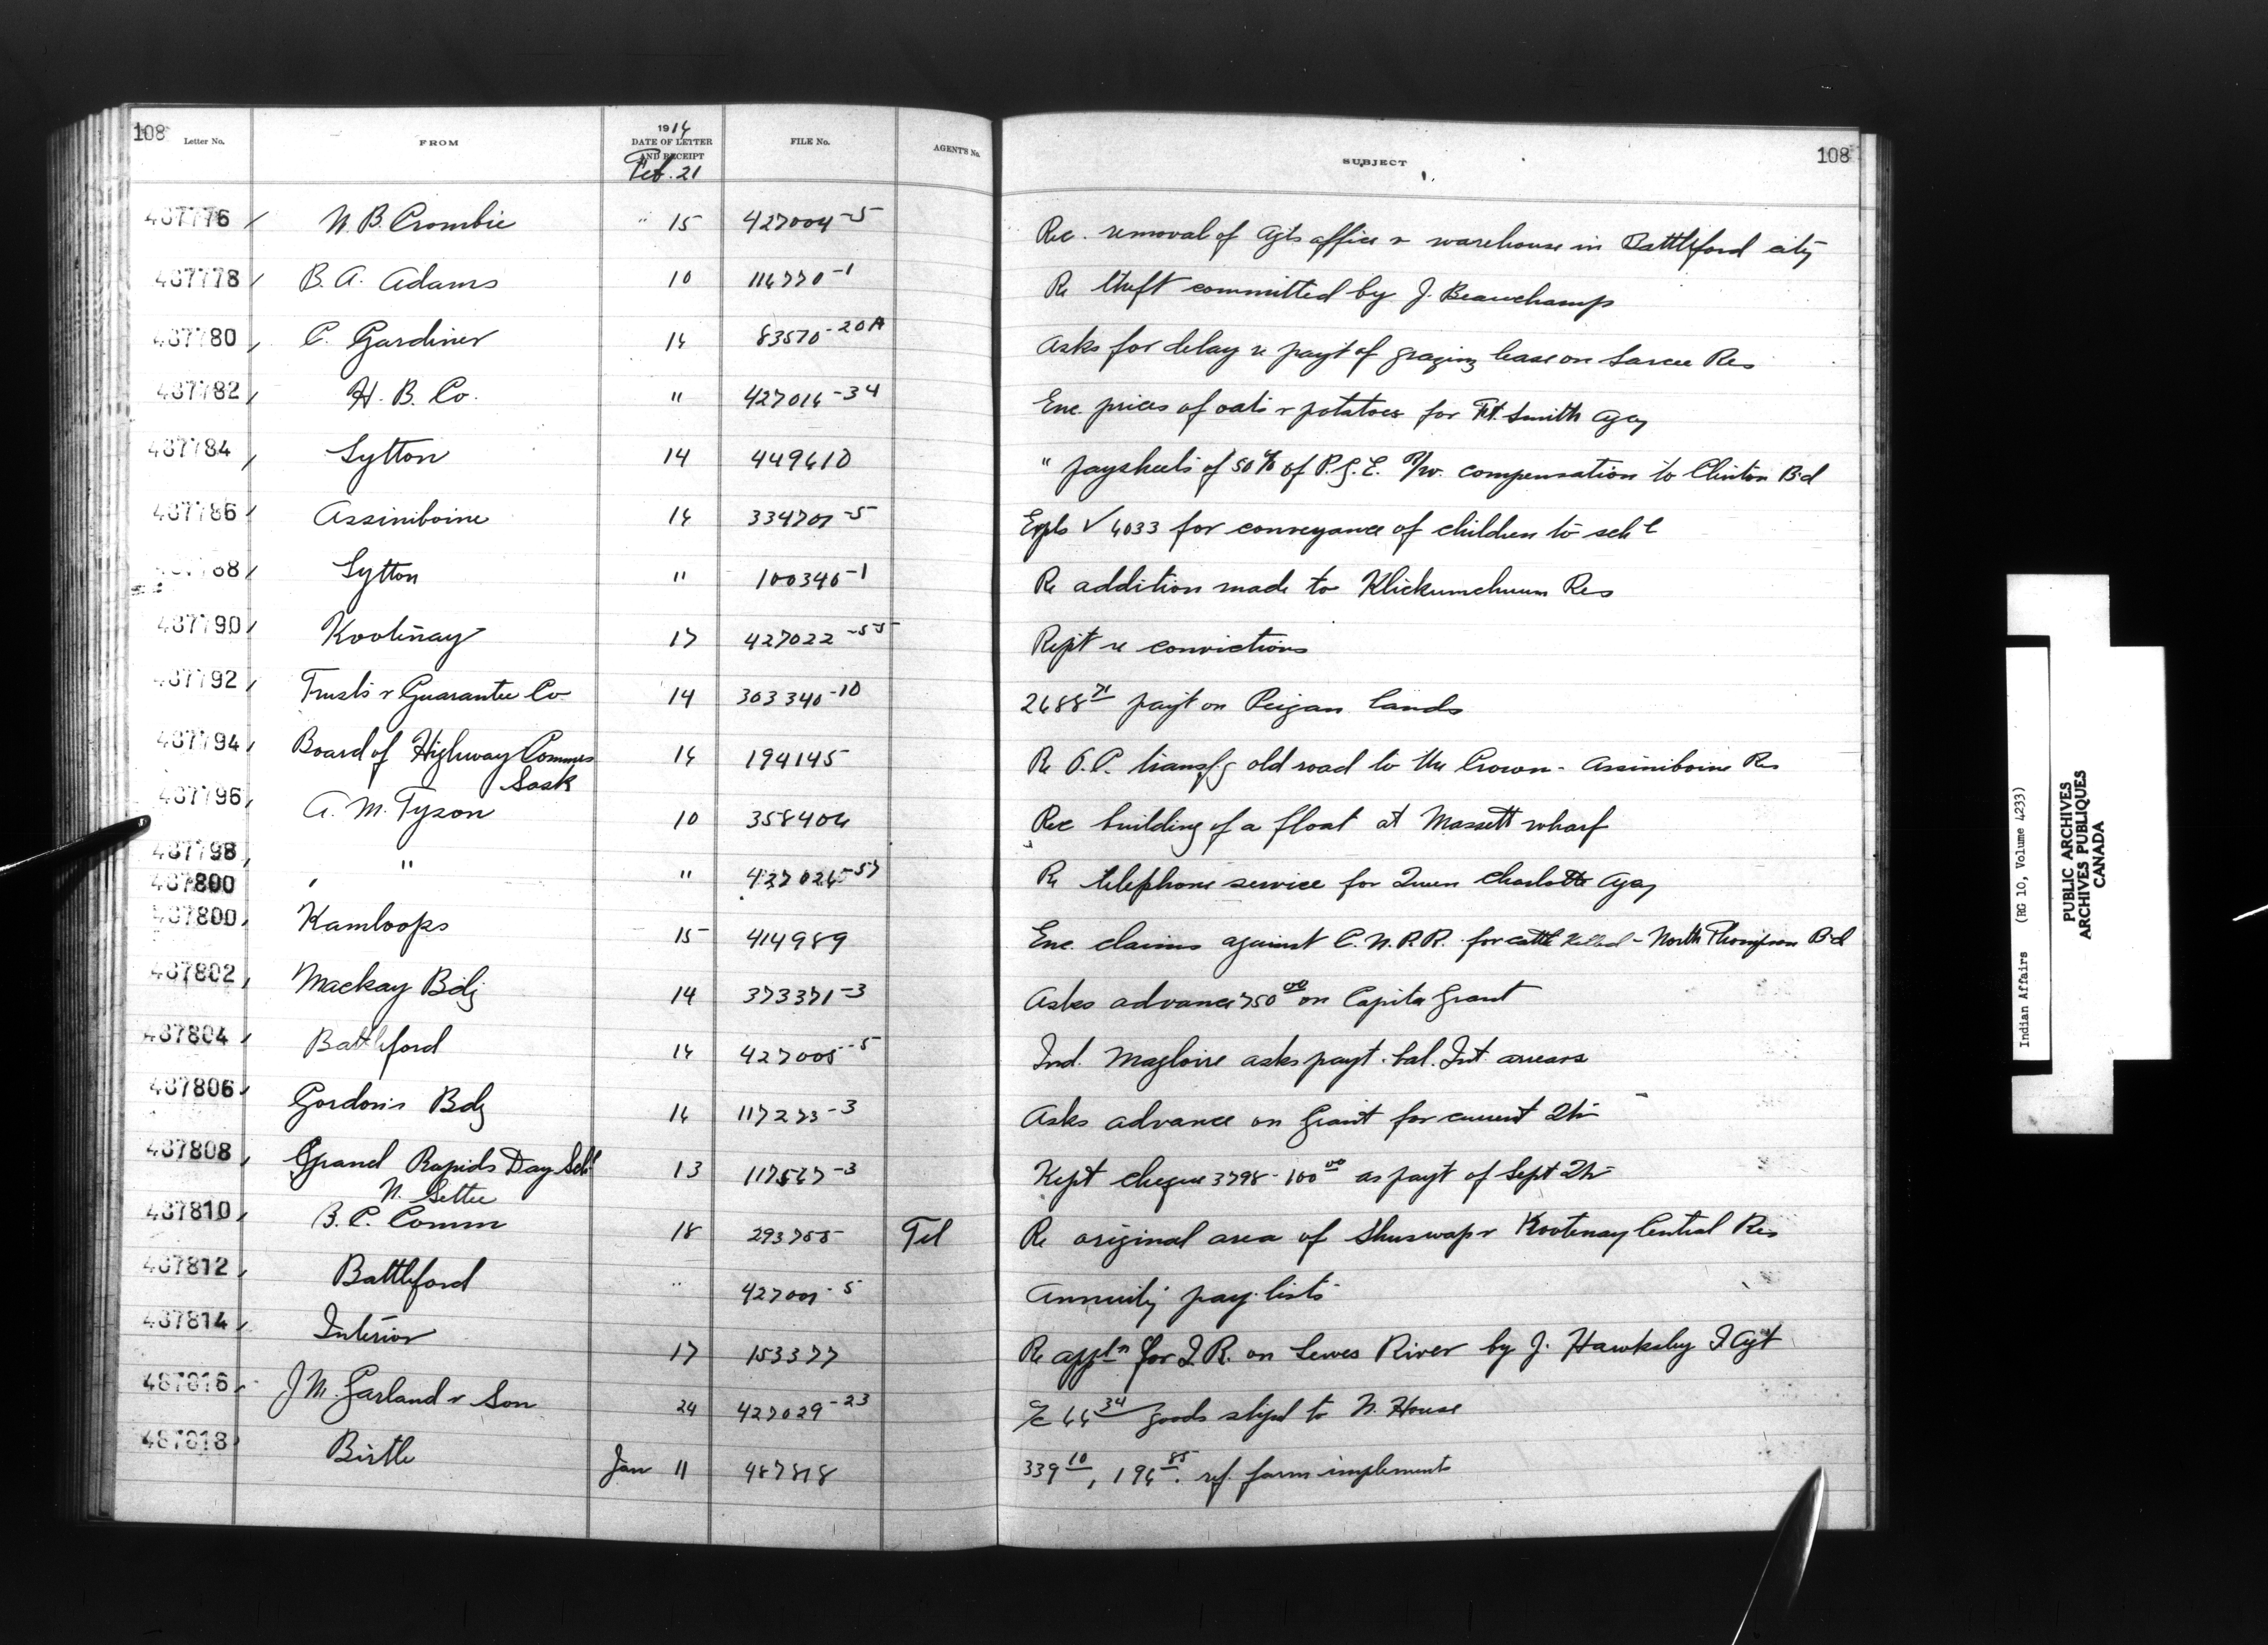 108 Letter No. FROM 1914 DATE OF LETTER AND RECEIPT FILE No. AGENT'S No. SUBJECT 108
Feb. 21
467776 W. B. Crombie " 15 427004-5 Rec. removal of Agts office & warehouse in Battleford city
467778 B. A. Adams 10 116770-1 Re theft committed by J. Beauchamp
467780 C. Gardiner 14 83570-20A Asks for delay re payt of grazing lease on Sarcee Res
467782 H. B. Co. " 427014-34 Enc. prices of oats & potatoes for Ft. Smith Agcy
467784 Lytton 14 449610 " paysheets of 50% of P.G.E. R/w. compensation to Clinton Bd
467786 Assiniboine 14 334701-5 Expls V 4033 for conveyance of children to schl
88 Lytton " 100340-1 Re addition made to Klickumcheen Res
467790 Kootenay 17 427022-55 Rept re convictions
467792 Trusts & Guarantee Co 14 303340-10 2688 71 payt on Peigan lands
467794 Board of Highway Commrs 14 194145 Re O.C. transfg old road to the Crown - Assiniboine Res
Sask
467796 A. M. Tyson 10 358404 Rec building of a float at Massett wharf
467798 " " 427024-57 Re telephone service for Queen Charlotte Agcy
467800
467800 Kamloops 15 414989 Enc. claims against C.N.R.R. for cattle killed - North Thompson Bd
467802 Mackay Bdg 14 373371-3 Asks advance 750 00 on Capita Grant
467804 Battleford 14 427005-5 Ind. Magloire asks payt. bal. Int. arrears
467806 Gordon's Bdg 14 117273-3 Asks advance on Grant for current Qtr
467808 Grand Rapids Day Schl 13 117567-3 Kept cheque 3798 - 100 00 as payt of Sept Qtr
N. Settee
467810 B. C. Comm 18 293755 Tel Re original area of Shuswap & Kootenay Central Res
467812 Battleford " 427001-5 Annuity pay-lists
467814 Interior 17 153377 Re appln for I.R. on Lewes River by J. Hawksley I Agt
467816 J M. Garland & Son 24 427029-23 a/c 44 34 goods shipd to N. House
467818 Birtle Jan 11 467818 339 10, 194 85. ref. farm implements
Indian Affairs (RG 10, Volume 4233)
PUBLIC ARCHIVES
ARCHIVES PUBLIQUES
CANADA